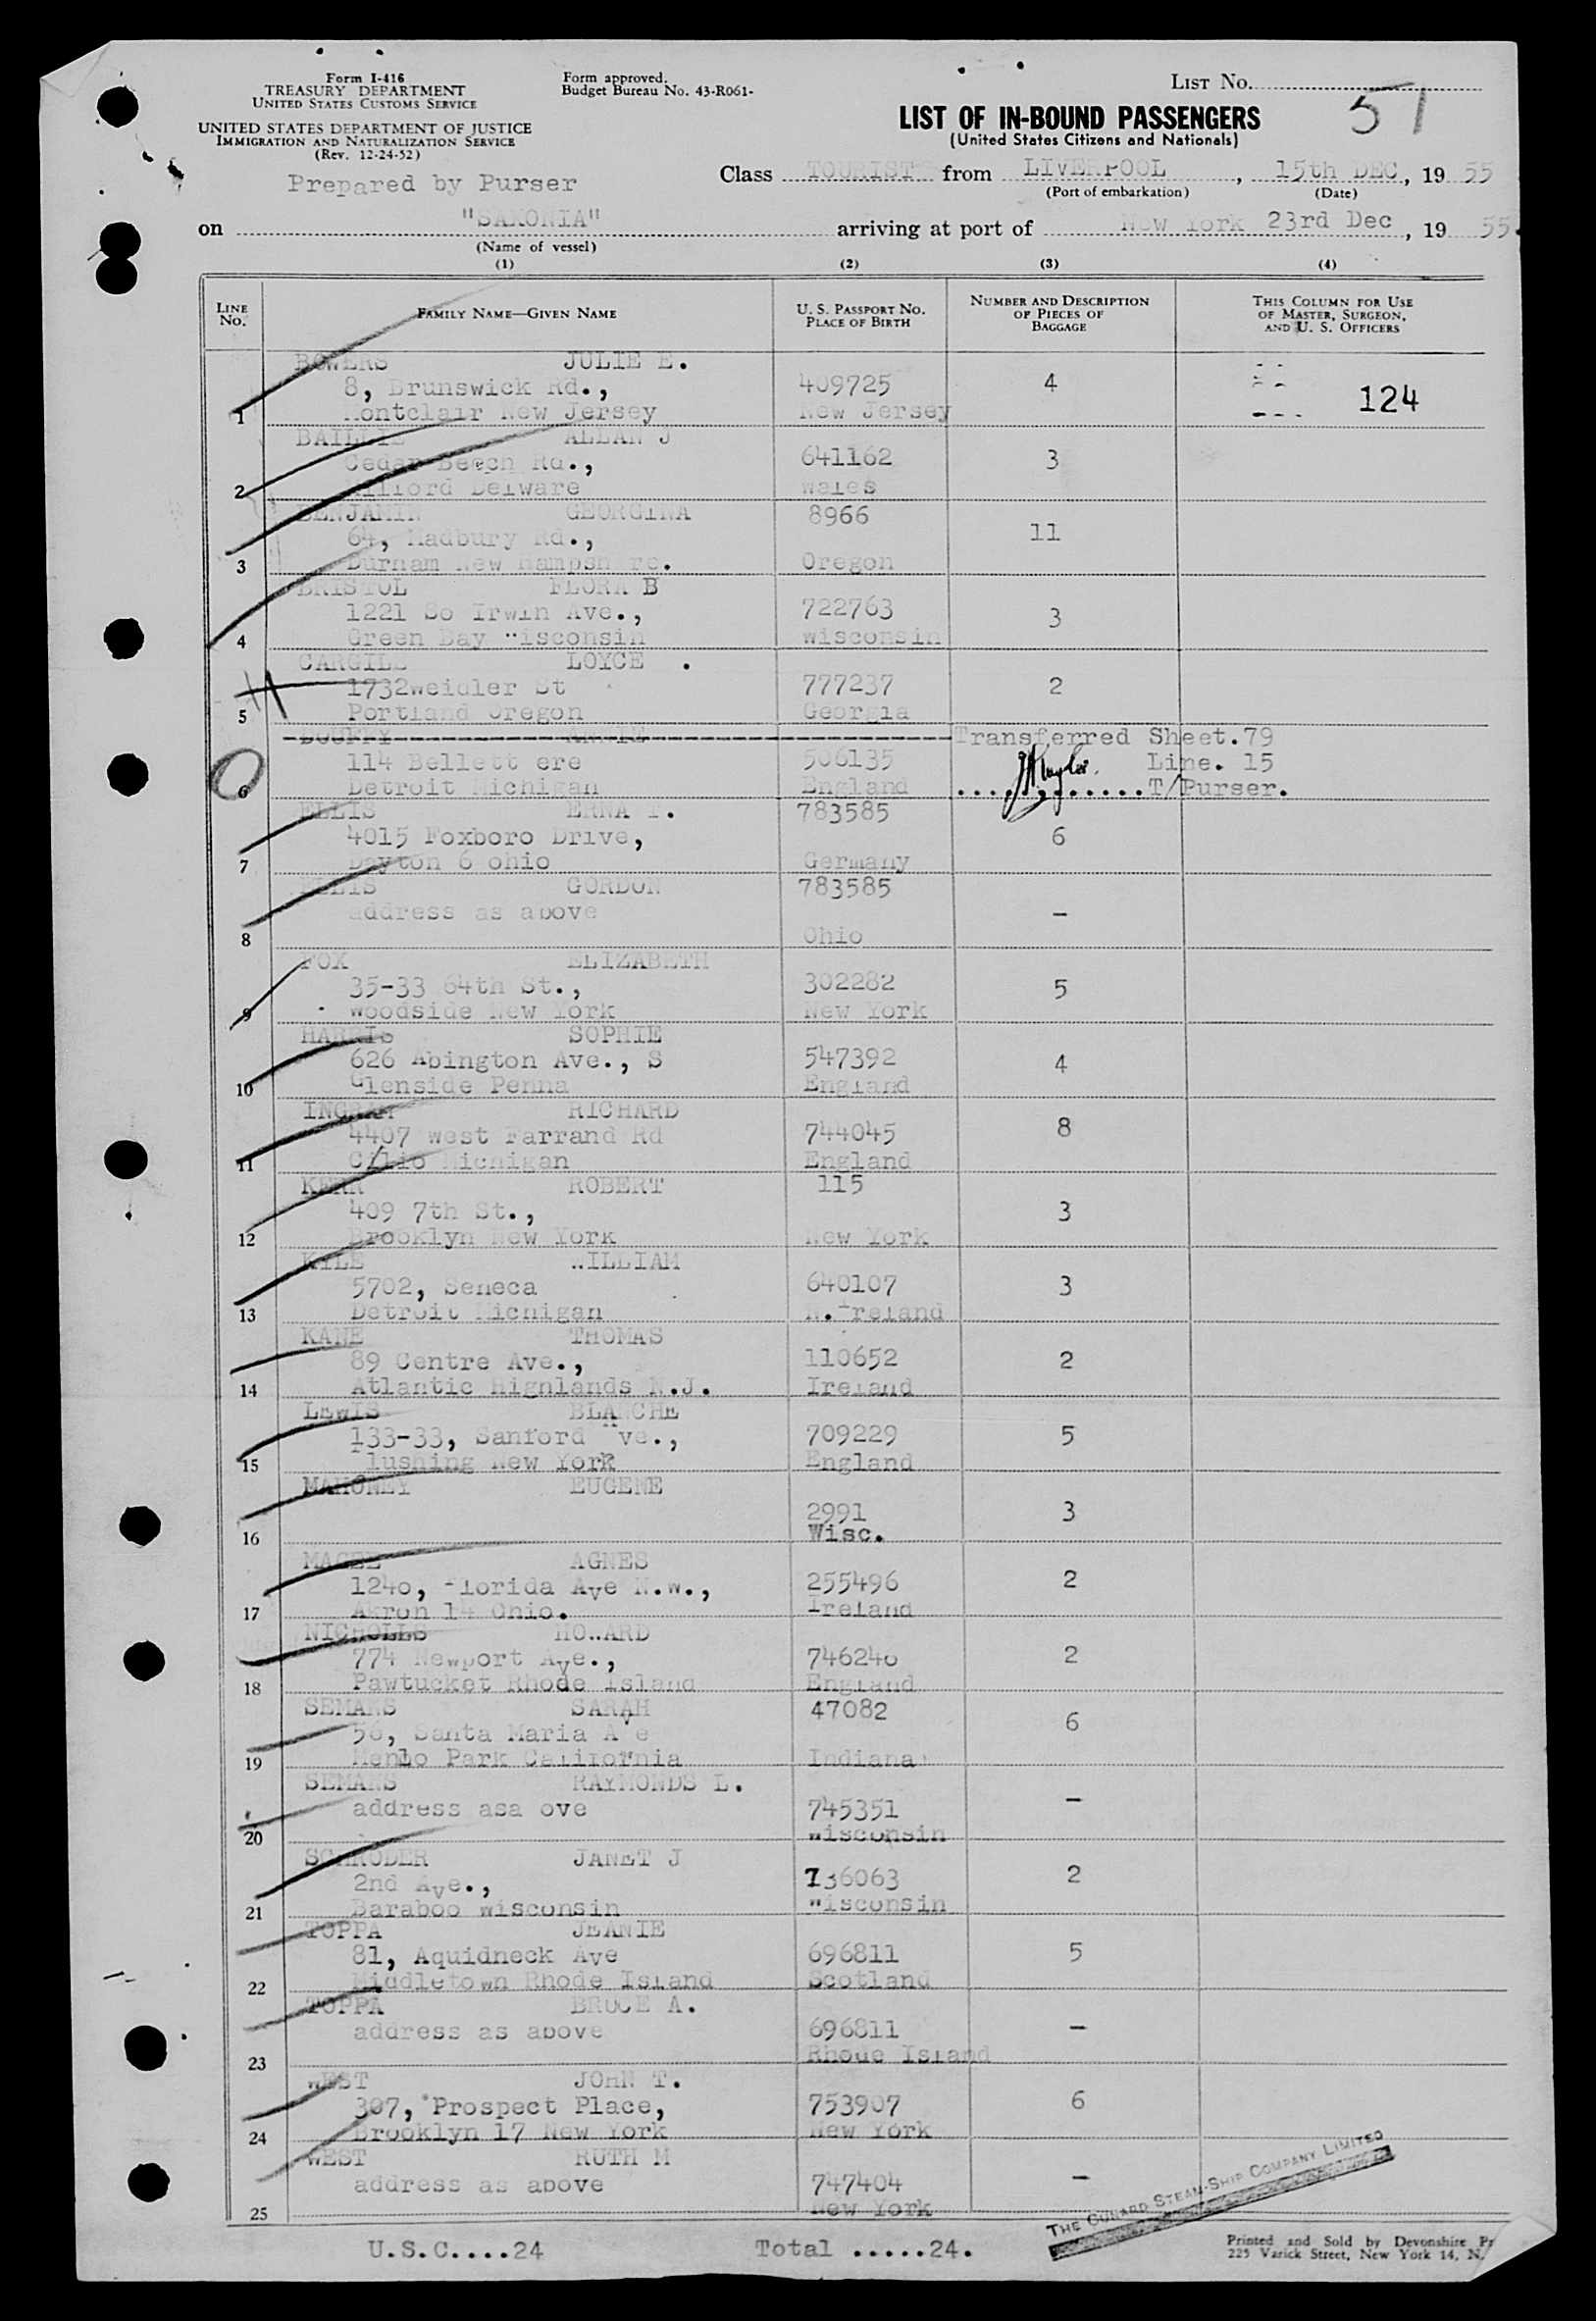 Form I-416
TREASURY DEPARTMENT
UNITED STATES CUSTOMS SERVICE
UNITED STATES DEPARTMENT OF JUSTICE
IMMIGRATION AND NATURALIZATION SERVICE
(Rev. 12-24-52)
Form approved.
Budget Bureau No. 43-R061-
LIST NO.
51
LIST OF IN-BOUND PASSENGERS
(United States Citizens and Nationals)
Prepared by Purser
Class TOURIST from LIVERPOOL, 15th DEC, 19 55
(Port of embarkation) (Date)
on "SAXONIA" arriving at port of New York 23rd Dec, 19 55.
(Name of vessel)
(1) (2) (3) (4)
LINE NO.
FAMILY NAME—GIVEN NAME
U. S. PASSPORT NO.
PLACE OF BIRTH
NUMBER AND DESCRIPTION
OF PIECES OF
BAGGAGE
THIS COLUMN FOR USE
OF MASTER, SURGEON,
AND U. S. OFFICERS
BOWERS JULIE E.
8, Brunswick Rd., 409725 4 124
1 Montclair New Jersey New Jersey
BAILLIE ALLAN J
Cedar Beech Rd., 641162 3
2 Milford Delware Wales
BENJAMIN GEORGINA 8966
64, Madbury Rd., 11
3 Durham New Hampsh re. Oregon
BRISTOL FLORA B
1221 So Irwin Ave., 722763 3
4 Green Bay Wisconsin Wisconsin
CARGILL LOYCE .
1732weidler St 777237 2
5 Portland Oregon Georgia
Transferred Sheet.79
114 Bellett ere 506135 Line. 15
6 Detroit Michigan England T/Purser.
ELLIS ERNA T. 783585
4015 Foxboro Drive, 6
7 Dayton 6 ohio Germany
ELLIS GORDON 783585
address as above -
8 Ohio
FOX ELIZABETH
35-33 64th St., 302282 5
9 Woodside New York New York
HARRIS SOPHIE
626 Abington Ave., S 547392 4
10 Glenside Penna England
INGRAM RICHARD
4407 West Farrand Rd 744045 8
11 C/Lio Michigan England
KERR ROBERT 115
409 7th St., 3
12 Brooklyn New York New York
KYLE WILLIAM
5702, Seneca 640107 3
13 Detroit Michigan N.Ireland
KANE THOMAS
89 Centre Ave., 110652 2
14 Atlantic Highlands N.J. Ireland
LEWIS BLANCHE
133-33, Sanford Ave., 709229 5
15 lushing New York England
MAHONEY EUGENE
2991 3
16 Wisc.
MAGEE AGNES
1240, Florida Ave N.W., 255496 2
17 Akron 14 Ohio. Ireland
NICHOLLS HOWARD
774 Newport Ave., 746246 2
18 Pawtucket Rhode Island England
SEMANS SARAH 47082
58, Santa Maria Ave 6
19 Menlo Park California Indiana
SEMANS RAYMONDS L.
address asa ove 745351 -
20 Wisconsin
SCHRODER JANET J
2nd Ave., 736063 2
21 Baraboo wisconsin Wisconsin
TOPPA JEANIE
81, Aquidneck Ave 696811 5
22 Middletown Rhode Island Scotland
TOPPA BRUCE A.
address as above 696811 -
23 Rhode Island
WEST JOHN T.
307, Prospect Place, 753907 6
24 Brooklyn 17 New York New York
WEST RUTH M
address as above 747404 -
25 New York
THE CUNARD STEAM-SHIP COMPANY LIMITED
U.S.C....24 Total .....24.
Printed and Sold by Devonshire Pr
225 Varick Street, New York 14, N.